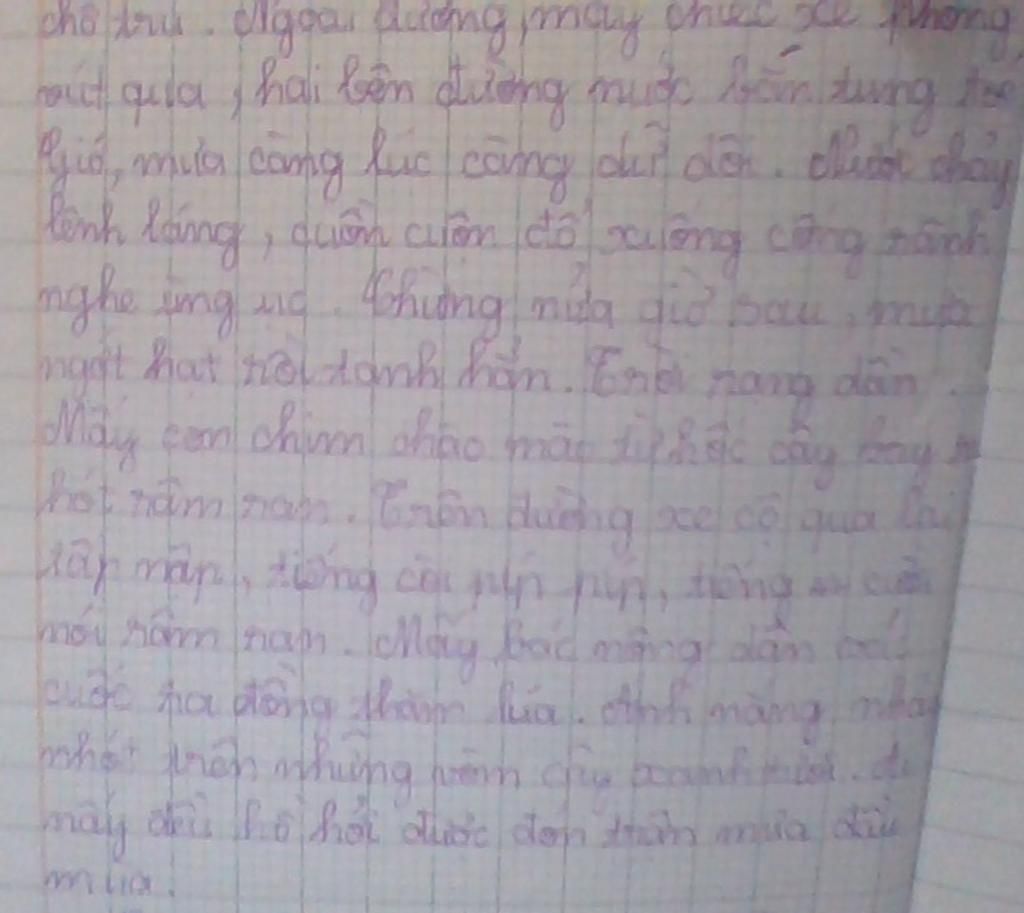 chỗ trú. Ngoài đường, mấy chiếc xe phóng
vút qua, hai bên đường nước bắn tung toé
Gió, mưa càng lúc càng dữ dội. Nước chảy
lênh láng, cuồn cuộn đổ xuống cống rãnh
nghe ùng ục. Chừng nửa giờ sau, mưa
ngớt hạt rồi tạnh hẳn. Trời rạng dần.
Mấy con chim chào mào từ hốc cây bay
hót râm ran. Trên đường xe cộ qua lại
tấp nập, tiếng còi pip pip, tiếng cười
nói râm ran. Mấy bác nông dân vác
cuốc ra đồng thăm lúa. Ánh nắng nhảy
nhót trên những vòm cây xanh tươi. Ai
mấy đều hồ hởi được đón trận mưa đầu
mùa.